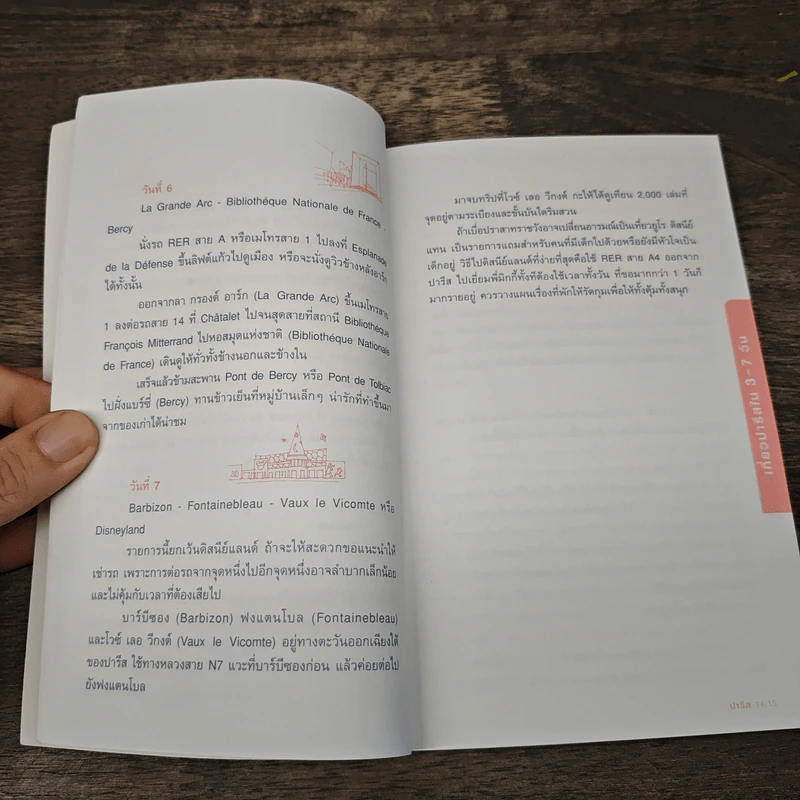 วันที่ 6
La Grande Arc - Bibliothéque Nationale de France -
Bercy
นั่งรถ RER สาย A หรือเมโทรสาย 1 ไปลงที่ Esplanade
de la Défense ขึ้นลิฟต์แก้วไปดูเมือง หรือจะนั่งดูวิวข้างหลังอาร์ก
ได้ทั้งนั้น
ออกจากลา กรองด์ อาร์ก (La Grande Arc) ขึ้นเมโทรสาย
1 ลงต่อรถสาย 14 ที่ Châtalet ไปจนสุดสายที่สถานี Bibliothéque
François Mitterrand ไปหอสมุดแห่งชาติ (Bibliothéque Nationale
de France) เดินดูให้ทั่วทั้งข้างนอกและข้างใน
เสร็จแล้วข้ามสะพาน Pont de Bercy หรือ Pont de Tolbiac
ไปฝั่งแบร์ซี่ (Bercy) ทานข้าวเย็นที่หมู่บ้านเล็กๆ น่ารักที่ทำขึ้นมา
จากของเก่าได้น่าชม
วันที่ 7
Barbizon - Fontainebleau - Vaux le Vicomte หรือ
Disneyland
รายการนี้ยกเว้นดิสนีย์แลนด์ ถ้าจะให้สะดวกขอแนะนำให้
เช่ารถ เพราะการต่อรถจากจุดหนึ่งไปอีกจุดหนึ่งอาจลำบากเล็กน้อย
และไม่คุ้มกับเวลาที่ต้องเสียไป
บาร์บีซอง (Barbizon) ฟงแตนโบล (Fontainebleau)
และโวซ์ เลอ วีกงต์ (Vaux le Vicomte) อยู่ทางตะวันออกเฉียงใต้
ของปารีส ใช้ทางหลวงสาย N7 แวะที่บาร์บีซองก่อน แล้วค่อยต่อไป
ยังฟงแตนโบล
มาจบทริปที่โวซ์ เลอ วีกงต์ กะให้ได้ดูเทียน 2,000 เล่มที่
จุดอยู่ตามระเบียงและขั้นบันไดริมสวน
ถ้าเบื่อปราสาทราชวังอาจเปลี่ยนอารมณ์เป็นเที่ยวยูโร ดิสนีย์
แทน เป็นรายการแถมสำหรับคนที่มีเด็กไปด้วยหรือยังมีหัวใจเป็น
เด็กอยู่ วิธีไปดิสนีย์แลนด์ที่ง่ายที่สุดคือใช้ RER สาย A4 ออกจาก
ปารีส ไปเยี่ยมพี่มิกกี้ทั้งทีต้องใช้เวลาทั้งวัน ที่ขอมากกว่า 1 วันก็
มากรายอยู่ ควรวางแผนเรื่องที่พักให้รัดกุมเพื่อให้ทั้งคุ้มทั้งสนุก
เที่ยวปารีสใน 3-7 วัน
ปารีส 14:15